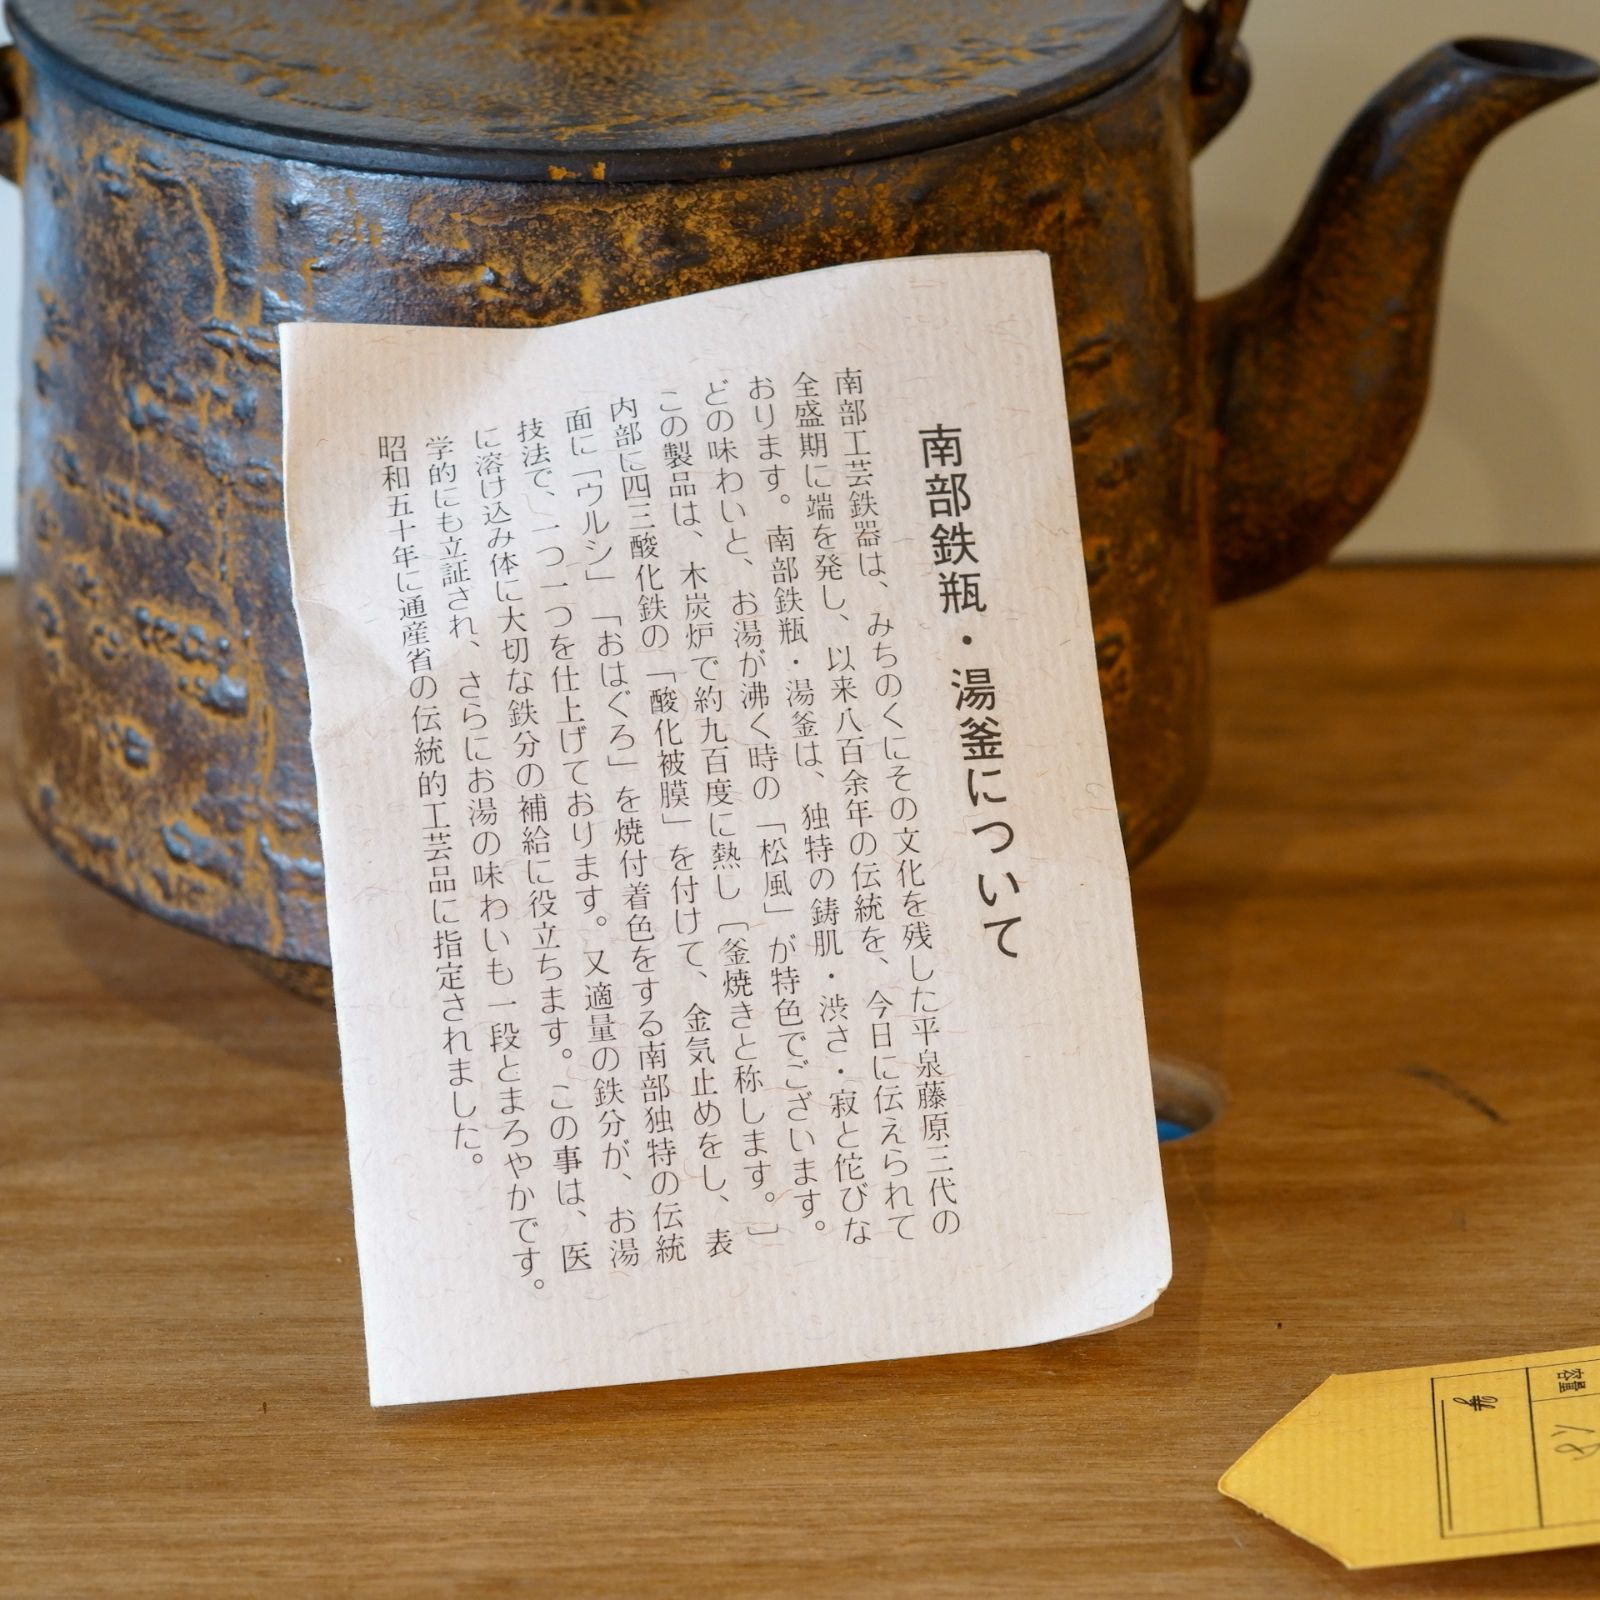 南部鉄瓶・湯釜について
南部工芸鉄器は、みちのくにその文化を残した平泉藤原三代の
全盛期に端を発し、以来八百余年の伝統を、今日に伝えられて
おります。南部鉄瓶・湯釜は、独特の鋳肌・渋さ・寂と侘びな
どの味わいと、お湯が沸く時の「松風」が特色でございます。
この製品は、木炭炉で約九百度に熱し〔釜焼きと称します。〕
内部に四三酸化鉄の「酸化被膜」を付けて、金気止めをし、表
面に「ウルシ」「おはぐろ」を焼付着色をする南部独特の伝統
技法で、一つ一つを仕上げております。又適量の鉄分が、お湯
に溶け込み体に大切な鉄分の補給に役立ちます。この事は、医
学的にも立証され、さらにお湯の味わいも一段とまろやかです。
昭和五十年に通産省の伝統的工芸品に指定されました。
容量